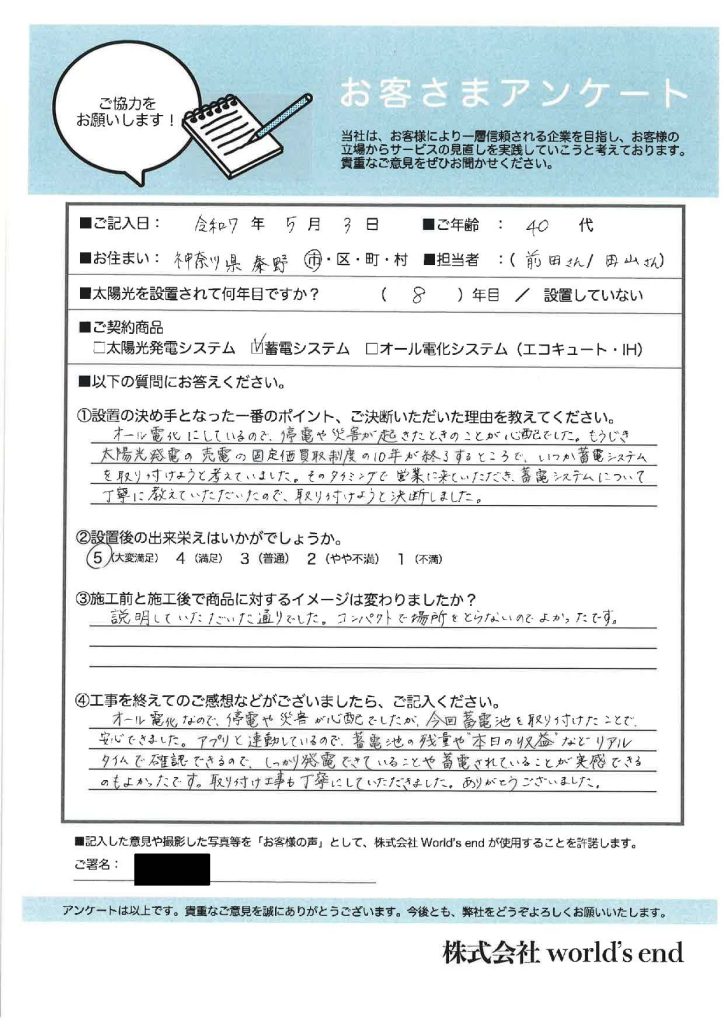 ご協力を
お願いします！
お客さまアンケート
当社は、お客様により一層信頼される企業を目指し、お客様の
立場からサービスの見直しを実践していこうと考えております。
貴重なご意見をぜひお聞かせください。
■ご記入日： 令和7 年 5 月 3 日 ■ご年齢 ： 40 代
■お住まい： 神奈川県 秦野 市・区・町・村 ■担当者 ：( 前田さん/ 田山さん)
■太陽光を設置されて何年目ですか？ ( 8 ) 年目 / 設置していない
■ご契約商品
□太陽光発電システム ☑蓄電システム □オール電化システム（エコキュート・IH）
■以下の質問にお答えください。
①設置の決め手となった一番のポイント、ご決断いただいた理由を教えてください。
オール電化にしているので、停電や災害が起きたときのことが心配でした。もうじき
太陽光発電の売電の固定価買取制度の10年が終了するところで、いつか蓄電システム
を取り付けようと考えていました。そのタイミングで営業に来ていただき、蓄電システムについて
丁寧に教えていただいたので、取り付けようと決断しました。
②設置後の出来栄えはいかがでしょうか。
5（大変満足） 4（満足） 3（普通） 2（やや不満） 1（不満）
③施工前と施工後で商品に対するイメージは変わりましたか？
説明していただいた通りでした。コンパクトで場所をとらないのでよかったです。
④工事を終えてのご感想などがございましたら、ご記入ください。
オール電化なので、停電や災害が心配でしたが、今回蓄電池を取り付けたことで、
安心できました。アプリと連動しているので、蓄電池の残量や"本日の収益"などリアル
タイムで確認できるので、しっかり発電できていることや蓄電されていることが実感できる
のもよかったです。取り付け工事も丁寧にしていただきました。ありがとうございました。
■記入した意見や撮影した写真等を「お客様の声」として、株式会社 World's end が使用することを許諾します。
ご署名：
アンケートは以上です。貴重なご意見を誠にありがとうございます。今後とも、弊社をどうぞよろしくお願いいたします。
株式会社 world's end